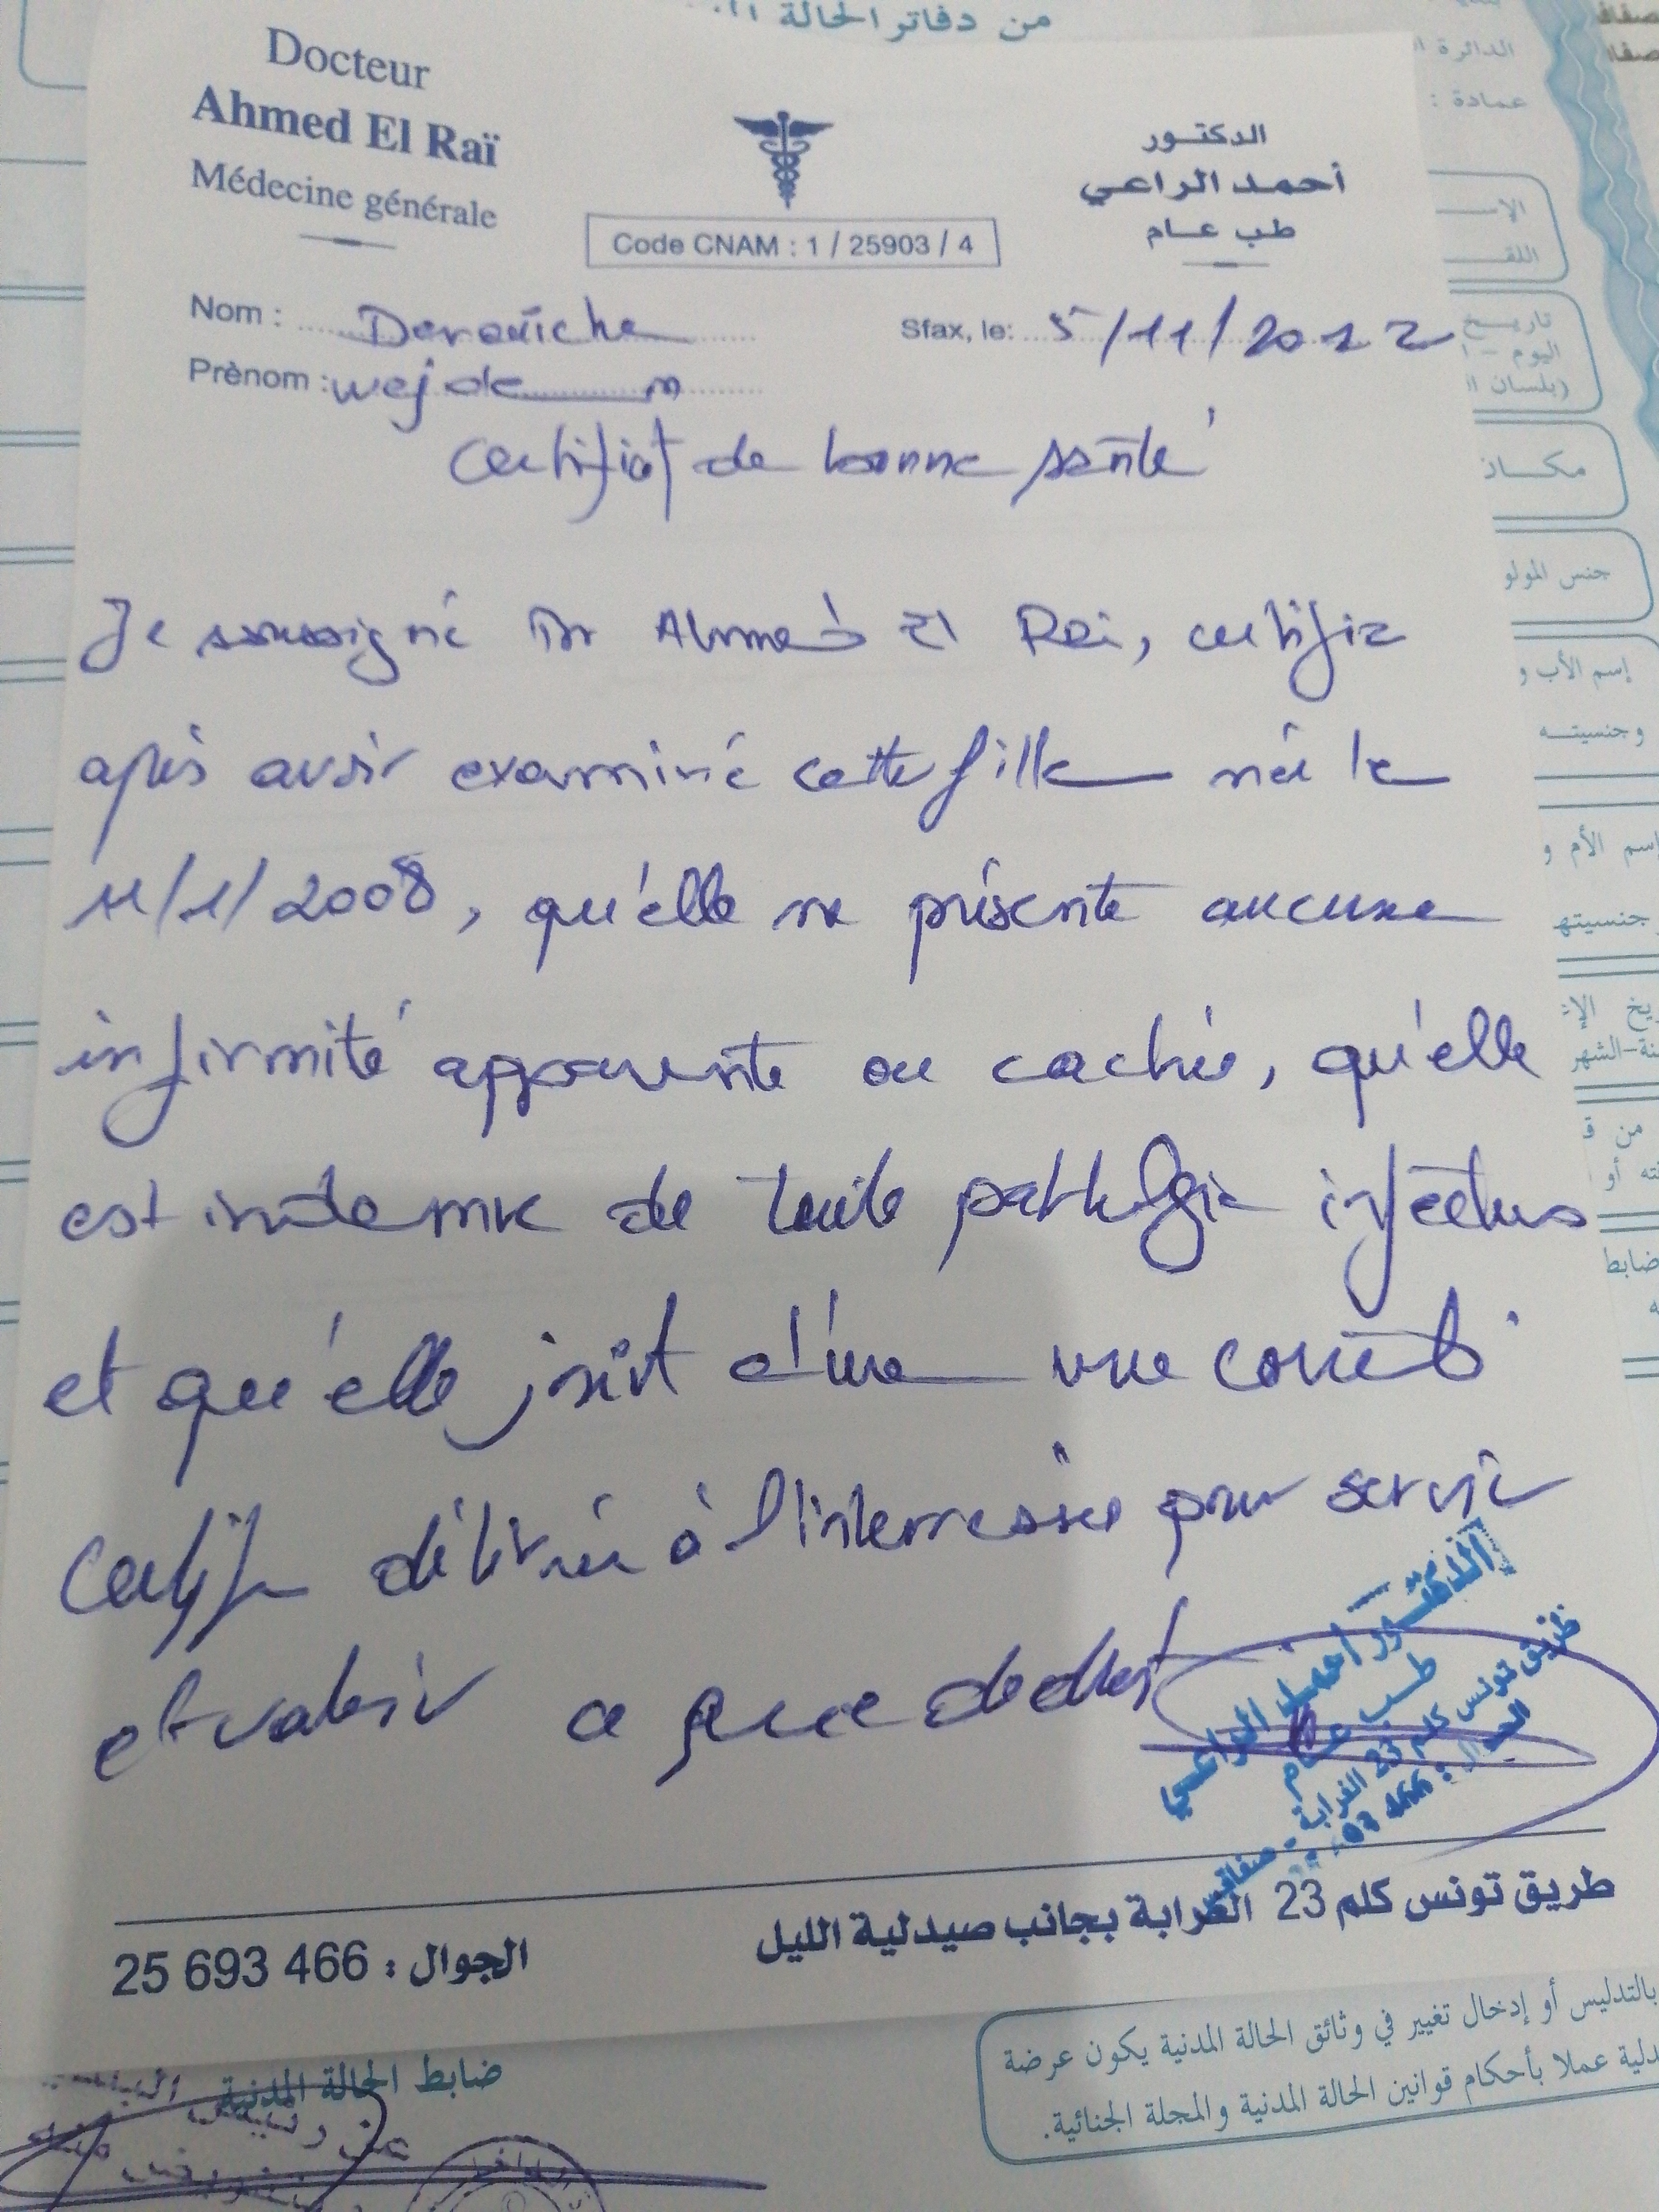 من دفاتر الحالة
Docteur
Ahmed El Raï
Médecine générale
Code CNAM : 1 / 25903 / 4
الدكتور
أحمد الراعي
طب عام
Nom : Derouiche
Sfax, le: 5/11/2022
Prènom : wejden
Certificat de bonne santé
Je soussigné Dr Ahmed El Rai, certifie
après avoir examiné cette fille née le
11/1/2008, qu'elle ne présente aucune
infirmité apparente ou cachée, qu'elle
est indemne de toute pathologie infectieuse
et qu'elle jouit d'une vue correcte
Certificat délivrée à l'interressée pour servir
et valoir ce que de droit
الدكتور أحمد الراعي
طب عام
طريق تونس كلم 23 الغرابة - صفاقس
طريق تونس كلم 23 الغرابة بجانب صيدلية الليل
الجوال : 466 693 25
الدائرة
عمادة :
تاريخ
اليوم -
(بلسان
مكان
جنس المولو
إسم الأب و
وجنسيته
إسم الأم و
جنسيتها
من
ضابط
ضابط الحالة المدنية
بالتدليس أو إدخال تغيير في وثائق الحالة المدنية يكون عرضة
عملا بأحكام قوانين الحالة المدنية والمجلة الجنائية.